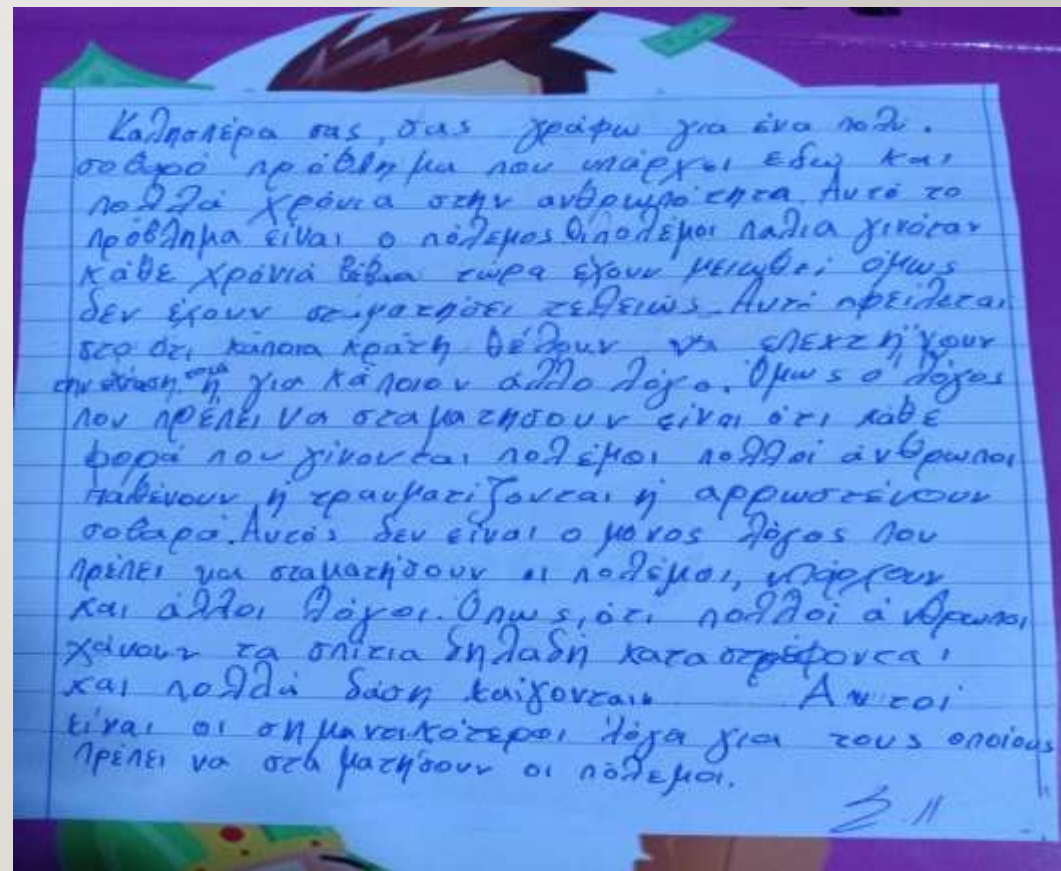 Καλησπέρα σας, σας γράφω για ένα πολυ.
σοβαρό πρόβλημα που υπάρχει εδώ και
πολλά χρόνια στην ανθρωπότητα. Αυτό το
πρόβλημα είναι ο πόλεμος. Οι πολέμοι παλια γινόταν
κάθε χρόνιά βέβαια τωρα έχουν μειωθεί όμως
δεν έχουν σταματήσει τεθειώς. Αυτό οφείλεται
στο ότι κάποια κράτη θέλουν να επεκτήνουν
την έκταση τους ή για κάποιον άλλο λόγο. Όμως ο λόγος
που πρέπει να σταματησουν είναι ότι κάθε
φορά που γίνονται πολέμοι πολλοί άνθρωποι
παθένουν ή τραυματίζονται ή αρρωστένουν
σοβαρά. Αυτός δεν είναι ο μόνος λόγος που
πρέπει να σταματήσουν οι πολέμοι, υπάρχουν
και άλλοι λόγοι. Όπως, ότι πολλοί άνθρωποι
χάνουν τα σπίτια δηλαδή καταστρέφονται
και πολλά δάση καίγονται. Αυτοί
είναι οι σημαντικότεροι λόγοι για τους οποίους
πρέπει να σταματήσουν οι πόλεμοι.
Σ Π